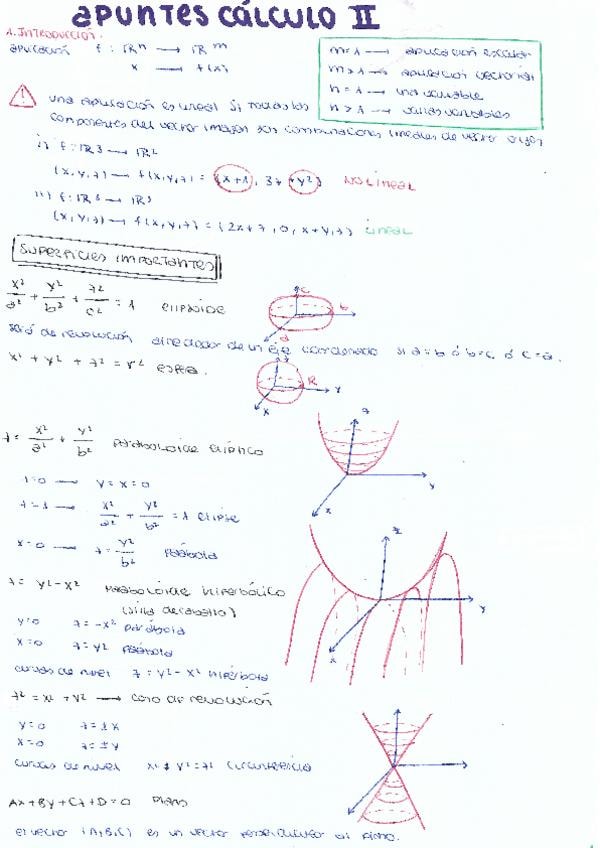 APUNTES CÁLCULO II
1. INTRODUCCIÓN.
aplicación f: ℝⁿ → ℝᵐ
x → f(x)
m=1 → aplicación escalar
m>1 → aplicación vectorial
n=1 → una variable
n>1 → varias variables
una aplicación es lineal si todas las
componentes del vector imagen son combinaciones lineales de vector origen
i) f: ℝ3 → ℝ2
(x,y,z) → f(x,y,z) = (x+1, 3z+y²) NO LINEAL
ii) f: ℝ3 → ℝ3
(x,y,z) → f(x,y,z) = (2x+z, 0, x+y,z) LINEAL
SUPERFICIES IMPORTANTES
x²/a² + y²/b² + z²/c² = 1 elipsoide
c
b
a
será de revolución alrededor de un eje coordenado si a=b ó b=c ó c=a.
x² + y² + z² = r² esfera.
R
y
x
z = x²/a² + y²/b² paraboloide elíptico
z
y
x
z=0 → y=x=0
z=1 → x²/a² + y²/b² = 1 elipse
x=0 → z = y²/b² parábola
z
y
x
z = y²-x² paraboloide hiperbólico
(silla de caballo)
y=0 z=-x² parábola
x=0 z=y² parábola
curvas de nivel z = y²-x² hipérbola
z² = x² + y² → cono de revolución
y=0 z=±x
x=0 z=±y
curvas de nivel x²+y²=z² circunferencia
Ax+By+Cz+D=0 plano
el vector (A,B,C) es un vector perpendicular al plano.